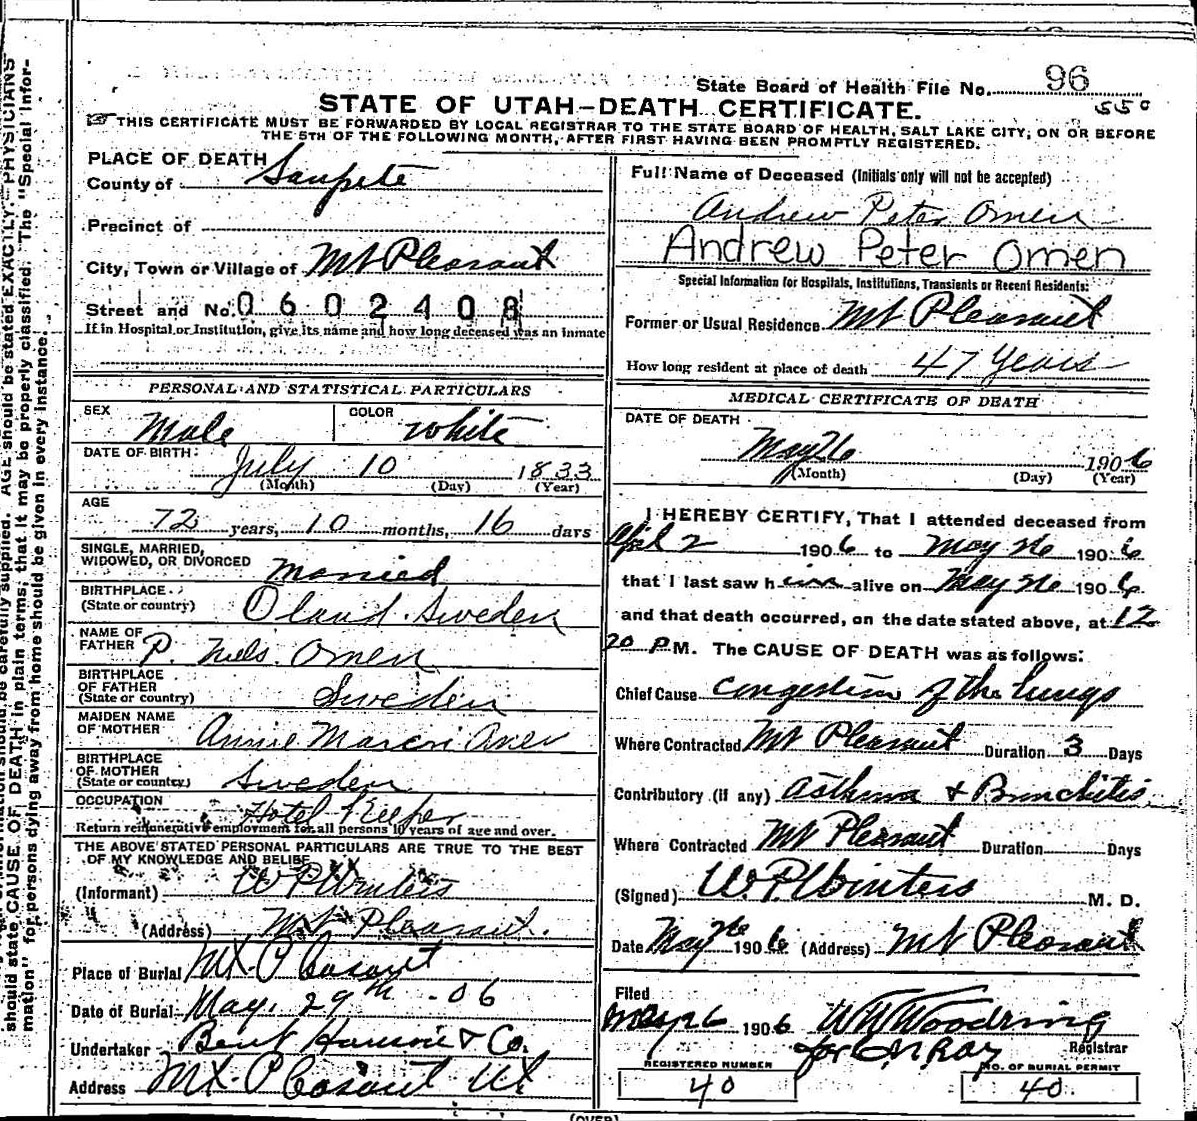 State Board of Health File No. 96
550
STATE OF UTAH—DEATH CERTIFICATE.
THIS CERTIFICATE MUST BE FORWARDED BY LOCAL REGISTRAR TO THE STATE BOARD OF HEALTH, SALT LAKE CITY, ON OR BEFORE
THE 5TH OF THE FOLLOWING MONTH, AFTER FIRST HAVING BEEN PROMPTLY REGISTERED.
should state CAUSE OF DEATH in plain terms, that it may be properly classified. The "Special Infor-
mation" for persons dying away from home should be given in every instance.
carefully supplied. AGE should be stated EXACTLY. PHYSICIANS
PLACE OF DEATH
County of Sanpete
Precinct of
City, Town or Village of Mt Pleasant
Street and No. 0602408
If in Hospital or Institution, give its name and how long deceased was an inmate
PERSONAL AND STATISTICAL PARTICULARS
SEX Male COLOR White
DATE OF BIRTH: July 10 1833
(Month) (Day) (Year)
AGE
72 years, 10 months, 16 days
SINGLE, MARRIED,
WIDOWED, OR DIVORCED Married
BIRTHPLACE
(State or country) Oland. Sweden
NAME OF
FATHER P. Niels. Omen
BIRTHPLACE
OF FATHER
(State or country) Sweden
MAIDEN NAME
OF MOTHER Annie
BIRTHPLACE
OF MOTHER
(State or country) Sweden
OCCUPATION Hotel Keeper
Return remunerative employment for all persons 10 years of age and over.
THE ABOVE STATED PERSONAL PARTICULARS ARE TRUE TO THE BEST
OF MY KNOWLEDGE AND BELIEF
(Informant) W P Winters
(Address) Mt Pleasant.
Place of Burial Mt. Pleasant
Date of Burial May. 29th - 06
Undertaker Bent Hansen & Co.
Address Mt. Pleasant Ut
Full Name of Deceased (Initials only will not be accepted)
Andrew Peter Omen
Andrew Peter Omen
Special Information for Hospitals, Institutions, Transients or Recent Residents:
Former or Usual Residence Mt Pleasant
How long resident at place of death 47 Years
MEDICAL CERTIFICATE OF DEATH
DATE OF DEATH
May 26 1906
(Month) (Day) (Year)
I HEREBY CERTIFY, That I attended deceased from
April 2 1906 to May 26 1906
that I last saw him alive on May 26 1906
and that death occurred, on the date stated above, at 12
20 P M. The CAUSE OF DEATH was as follows:
Chief Cause Congestion of the lungs
Where Contracted Mt Pleasant Duration 3 Days
Contributory (if any) Asthma & Bronchitis
Where Contracted Mt Pleasant Duration Days
(Signed) W. P. Winters M. D.
Date May 26 1906 (Address) Mt Pleasant
Filed
May 26 1906 W W Woodring
for C N Ray Registrar
REGISTERED NUMBER NO. OF BURIAL PERMIT
40 40
(OVER)